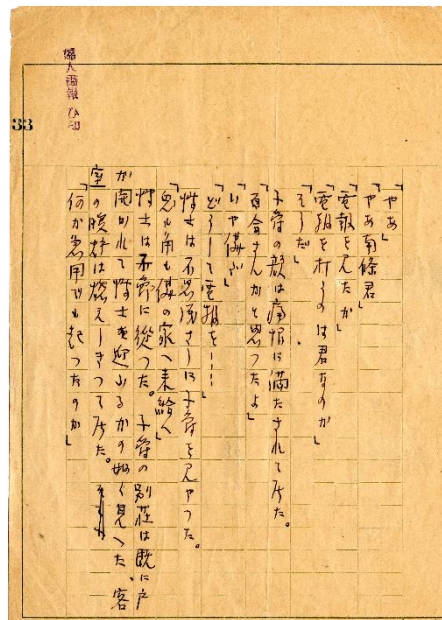 婦人画報 ひ
33
「やあ」
「やあ南條君」
「電報を見たか」
「電報を打つのは君なのか」
「そうだ」
子爵の顔は痛惜に満たされて居た。
「百合さんかと思つたよ」
「いや僕だ」
「どうして電報を……」
博士は不思議さうに子爵を見やつた。
「兎も角も僕の家へ来給へ」
博士は子爵に従つた。子爵の別荘は既に戸
が開かれて博士を迎ふるかの如く見へた。客
室の暖炉は燃えしきつて居た。
「何か急用でも起つたのか」